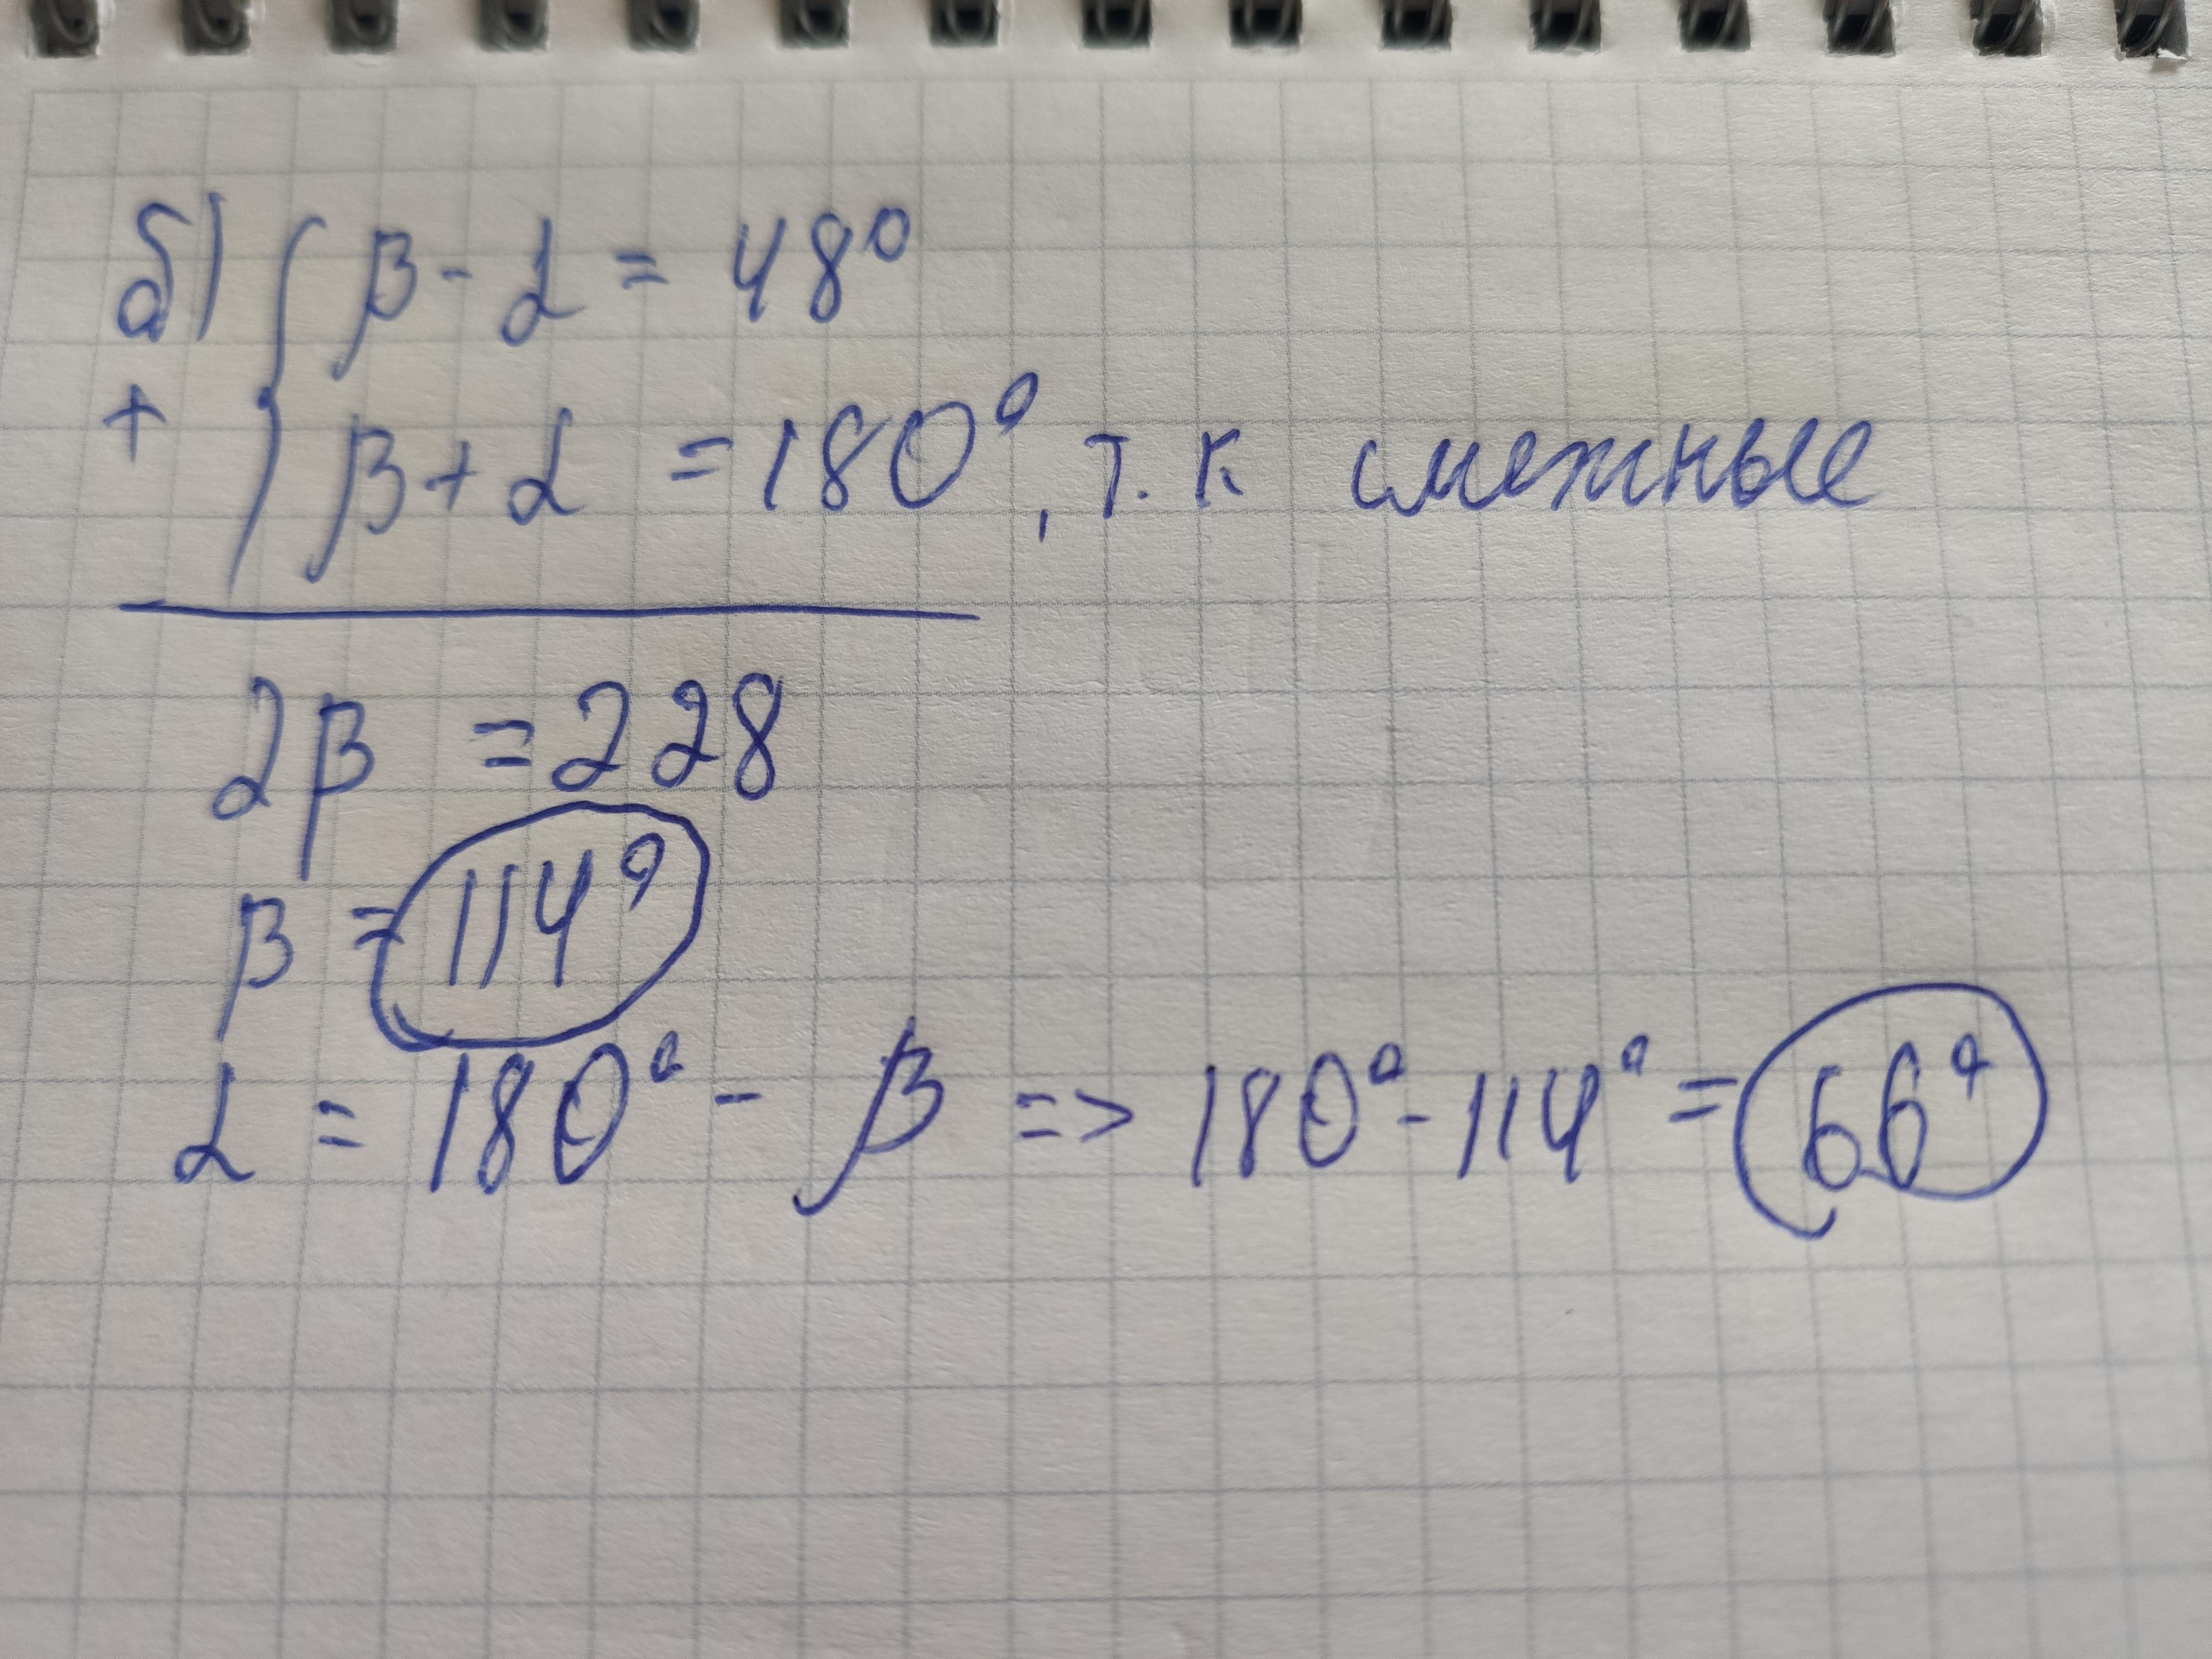 б) { β - α = 48°
+ { β + α = 180°, т.к смежные
2β = 228
β = 114°
α = 180° - β => 180° - 114° = 66°